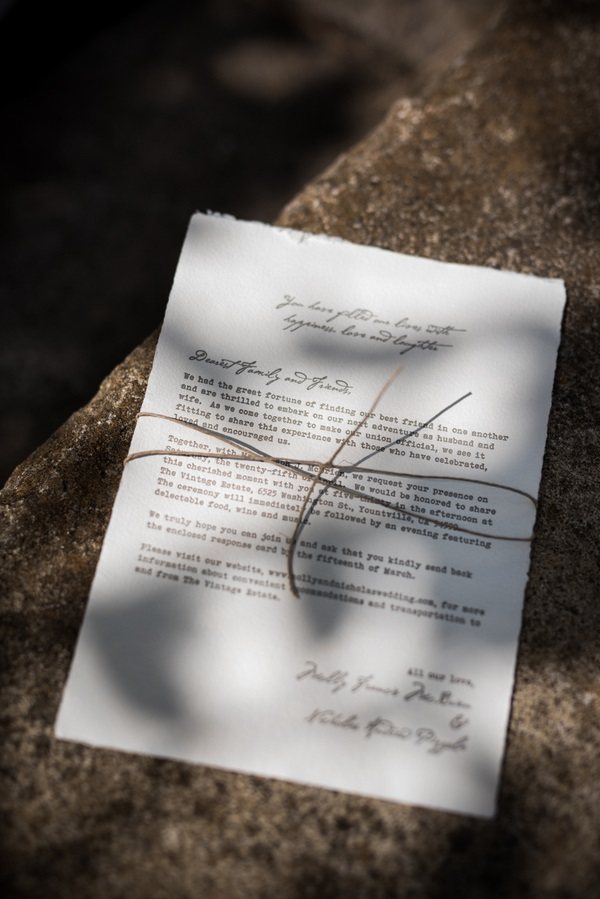 You have filled our lives with
happiness, love and laughter
Dearest Family and Friends,
We had the great fortune of finding our best friend in one another
and are thrilled to embark on our next adventure as husband and
wife. As we come together to make our union official, we see it
fitting to share this experience with those who have celebrated,
loved and encouraged us.
Together, with we request your presence on
Saturday, the twenty-fifth of We would be honored to share
this cherished moment with you at five-thirty in the afternoon at
The Vintage Estate, 6525 Washington St, Yountville, CA
The ceremony will immediately be followed by an evening featuring
delectable food, wine and music.
We truly hope you can join us and ask that you kindly send back
the enclosed response card by the fifteenth of March.
Please visit our website, www.mollyandnicholaswedding.com, for more
information about convenient accommodations and transportation to
and from The Vintage Estate.
All our love,
Molly
&
Nicholas